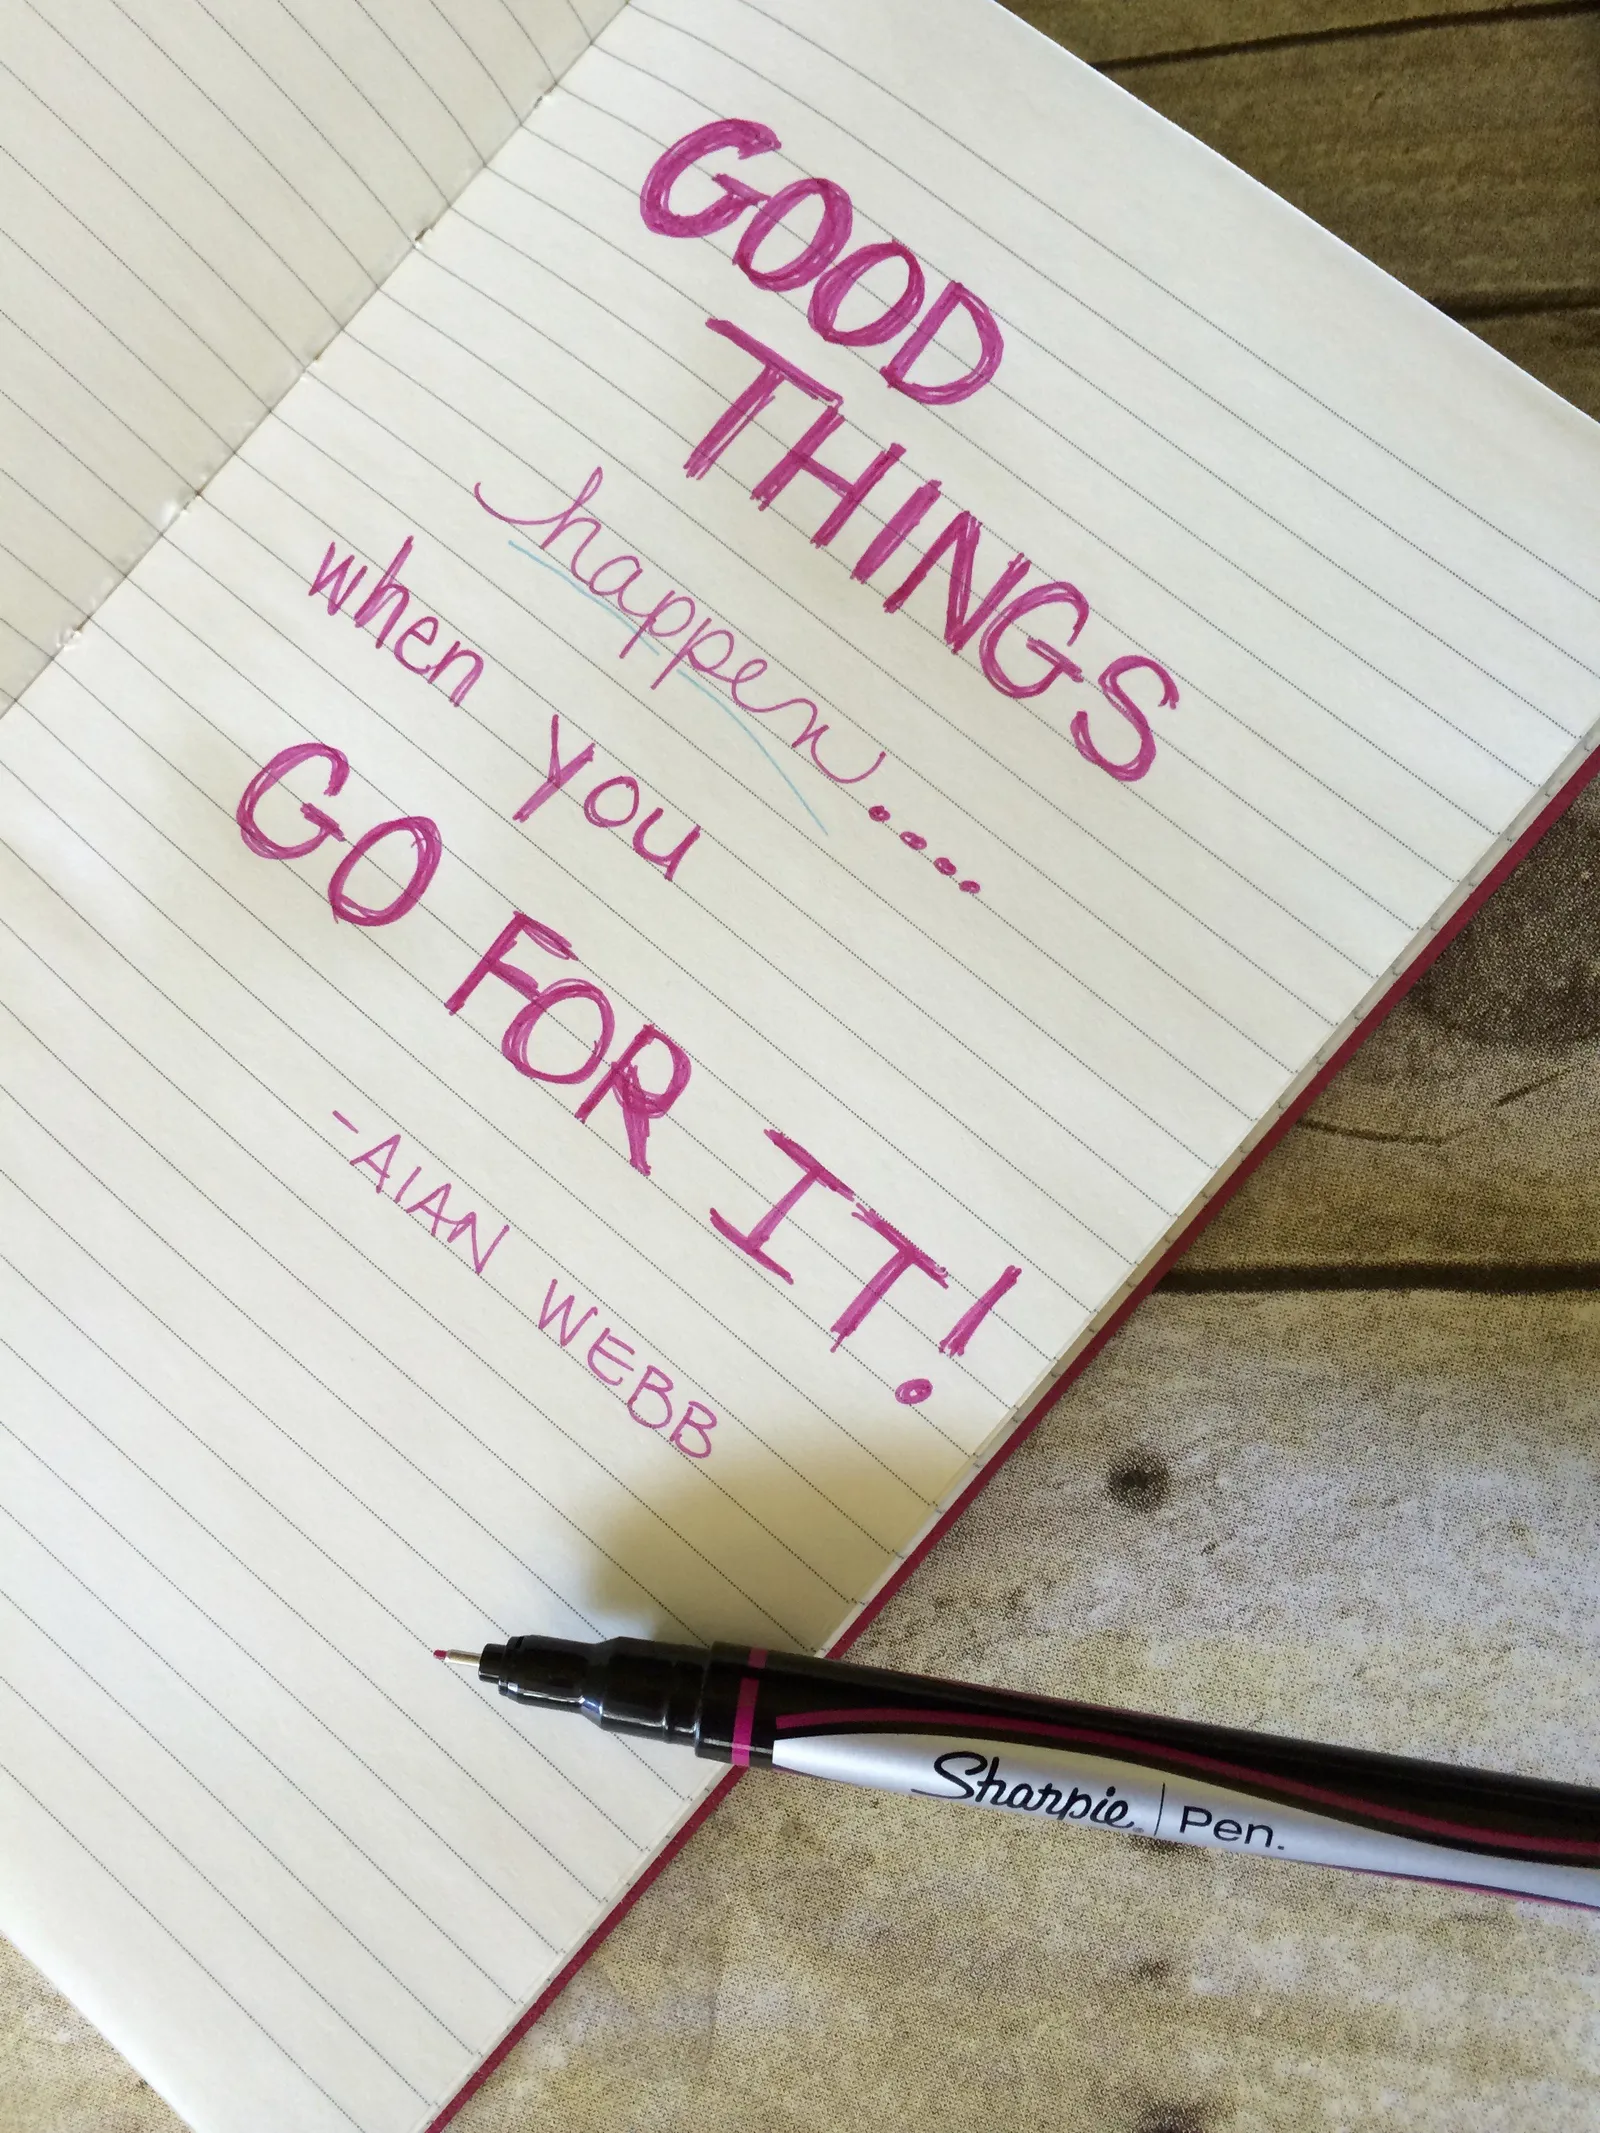 GOOD
THINGS
happen....
when you
GO FOR IT!
-AIAN WEBB
Sharpie | Pen.